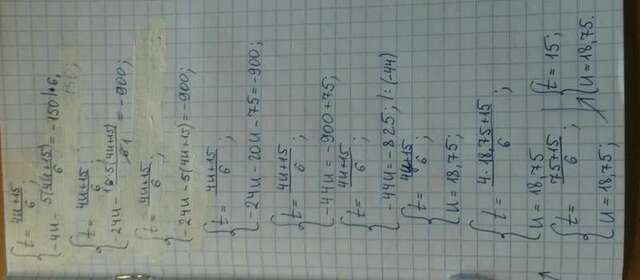 {t = (4u+15)/6;
{-4u - 5(4u+15)/6 = -150 |·6;
{t = (4u+15)/6;
{-24u - 6·5(4u+15)/6 = -900;
{t = (4u+15)/6;
{-24u - 5(4u+15) = -900;
{t = (4u+15)/6;
{-24u - 20u - 75 = -900;
{t = (4u+15)/6;
{-44u = -900 + 75;
{t = (4u+15)/6;
{-44u = -825; | : (-44)
{t = (4u+15)/6;
{u = 18,75;
{t = (4·18,75+15)/6;
{u = 18,75
{t = (75+15)/6;
{u = 18,75;
{t = 15;
{u = 18,75.